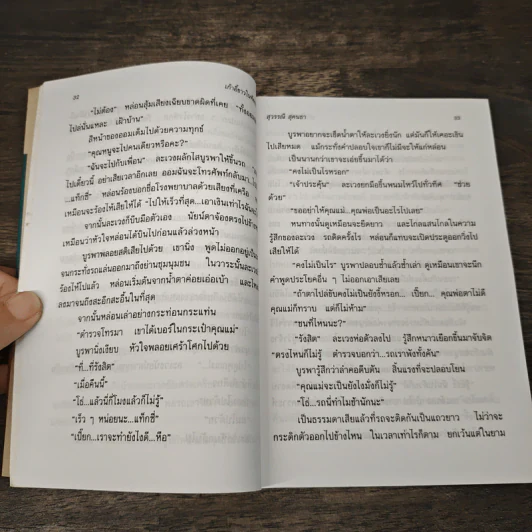 32
เก้าอี้ขาวในห้อง
"ไม่ต้อง" หล่อนสุ้มเสียงเฉียบขาดผิดที่เคย "ทั้งสอง
ไปสนั่นแหละ เฝ้าบ้าน"
สีหน้าของออมเต็มไปด้วยความทุกข์
"คุณหนูจะไปคนเดียวหรือคะ?"
"ฉันจะไปกับเพื่อน" ละเวงผลักไสบูรพาให้ขึ้นรถ
ไปเดี๋ยวนี้ อย่าเสียเวลาอีกเลย ออมฉันจะโทรศัพท์กลับมา
แท๊กซี่" หล่อนร้องบอกชื่อโรงพยาบาลด้วยเสียงที่เครือ
เหมือนจะร้องไห้เสียให้ได้ "ไปให้เร็วที่สุด...เอาเงินเท่าไรฉัน
จากนั้นละเวงก็บีบมือตัวเอง นัยน์ตาจ้องตรงไปข้าง
เหมือนว่าหัวใจหล่อนได้บินไปก่อนแล้วล่วงหน้า
บูรพาพลอยสติเสียไปด้วย เขานิ่ง พูดไม่ออกอยู่
จนกระทั่งรถแล่นออกมาถึงย่านชุมนุมชน ในวาระนั้นละเวง
ร้องไห้ไปแล้ว หล่อนเริ่มต้นจากน้ำตาค่อยเอ่อเบ้า และ
ลงมาจนถึงสะอึกสะอื้นในที่สุด
จากนั้นหล่อนเล่าอย่างกระท่อนกระแท่น
"ตำรวจโทรมา เขาได้เบอร์ในกระเป๋าคุณแม่"
บูรพานั่งเงียบ หัวใจพลอยเศร้าโศกไปด้วย
"ที่...ที่รังสิต"
"เมื่อคืนนี้"
"โธ่...แล้วนี่กี่โมงแล้วก็ไม่รู้"
"เร็ว ๆ หน่อยนะ...แท๊กซี่"
"เบี้ยก...เราจะทำยังไงดี...หือ"
สุวรรณี สุคนธา
33
บูรพาอยากจะเช็ดน้ำตาให้ละเวงยิ่งนัก แต่มันก็ให้เคอะเขิน
ไปเสียหมด แม้กระทั่งคำปลอบใจเขาก็ไม่มีจะให้แก่หล่อน
เป็นนานกว่าเขาจะเอ่ยขึ้นมาได้ว่า
"คงไม่เป็นไรหรอก"
"เจ้าประคุ้น" ละเวงยกมือขึ้นพนมไหว้ไปทั่วทิศ "ช่วย
ด้วย"
"ขออย่าให้คุณแม่...คุณพ่อเป็นอะไรไปเลย"
หนทางนั้นดูเหมือนจะยืดยาว และไกลแสนไกลในความ
รู้สึกของละเวง รถติดครั้งไร หล่อนก็แทบจะเปิดประตูออกวิ่งไป
เสียให้ได้
"คงไม่เป็นไร" บูรพาปลอบซ้ำแล้วซ้ำเล่า ดูเหมือนเขาจะนึก
คำพูดประโยคอื่น ๆ ไม่ออกเอาเสียเลย
"ถ้าตาไปล่ขับคงไม่เป็นยังงี้หรอก... เบี้ยก... คุณพ่อตาไม่ดี
คุณแม่ก็ทราบ แต่ก็ไม่ห้าม"
"ชนที่ไหนนะ?"
"รังสิต" ละเวงห่อตัวลงไป รู้สึกหนาวเยือกขึ้นมาจับจิต
"ตรงไหนก็ไม่รู้ ตำรวจบอกว่า...รถเราพังทั้งคัน"
บูรพารู้สึกว่าลำคอตีบตัน สิ้นแรงที่จะปลอบโยน
"คุณแม่จะเป็นยังไงมั่งก็ไม่รู้"
"โธ่...รถนี่ทำไมช้านักนะ"
เป็นธรรมดาเสียแล้วที่รถจะติดกันเป็นแถวยาว ไม่ว่าจะ
กระดิกตัวออกไปข้างไหน ในเวลาเท่าไรก็ตาม ยกเว้นแต่ในยาม